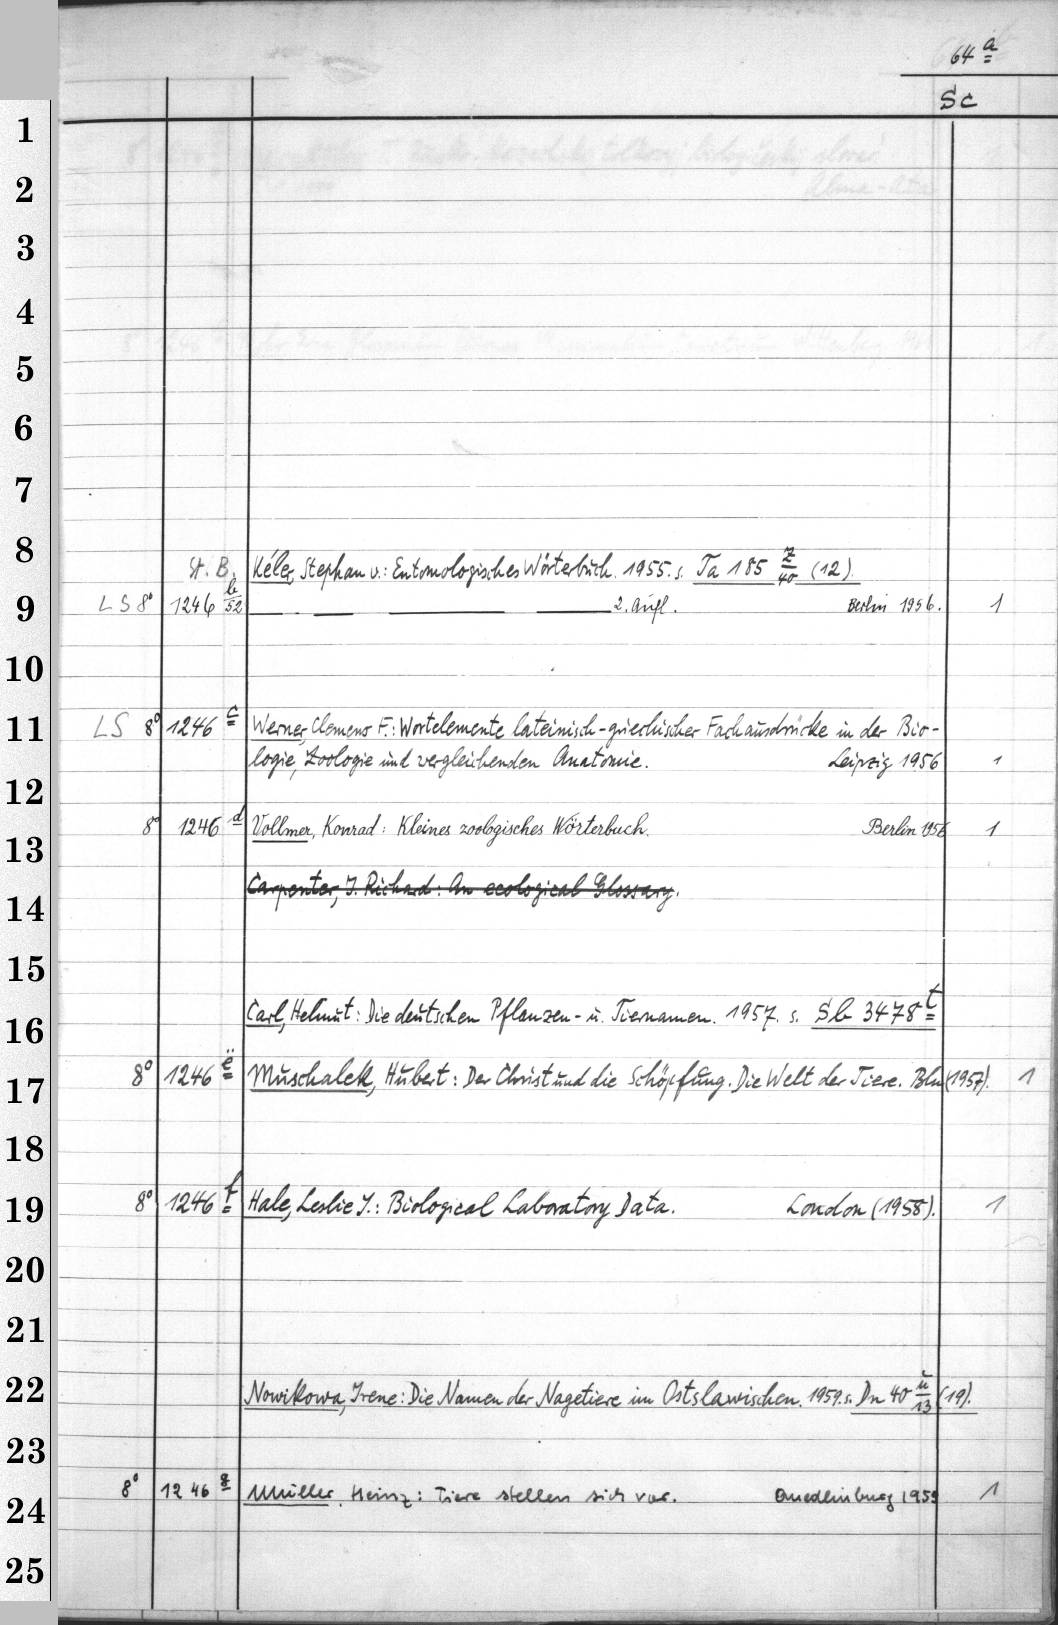 64 a
Sc
1
2
3
4
5
6
7
8
St. B. Kéler, Stephan v.: Entomologisches Wörterbuch. 1955. s. Ta 185 z/40 (12).
9 LS 8° 1246 b/52 — — — — 2. Aufl. Berlin 1956. 1
10
11 LS 8° 1246 c Werner, Clemens F.: Wortelemente lateinisch-griechischer Fachausdrücke in der Bio-
logie, Zoologie und vergleichenden Anatomie. Leipzig 1956 1
12
13 8° 1246 d Vollmer, Konrad: Kleines zoologisches Wörterbuch. Berlin 1956 1
14 Carpenter, J. Richard: An ecological Glossary.
15
16 Carl, Helmut: Die deutschen Pflanzen- u. Tiernamen. 1957. s. Sb 3478 t
17 8° 1246 e Muschalek, Hubert: Der Christ und die Schöpfung. Die Welt der Tiere. Bln (1957). 1
18
19 8° 1246 f Hale, Leslie J.: Biological Laboratory Data. London (1958). 1
20
21
22 Nowikowa, Irene: Die Namen der Nagetiere im Ostslawischen. 1959. s. Dn 40 u/13 (19).
23
24 8° 1246 g Müller, Heinz: Tiere stellen sich vor. Quedlinburg 1959 1
25